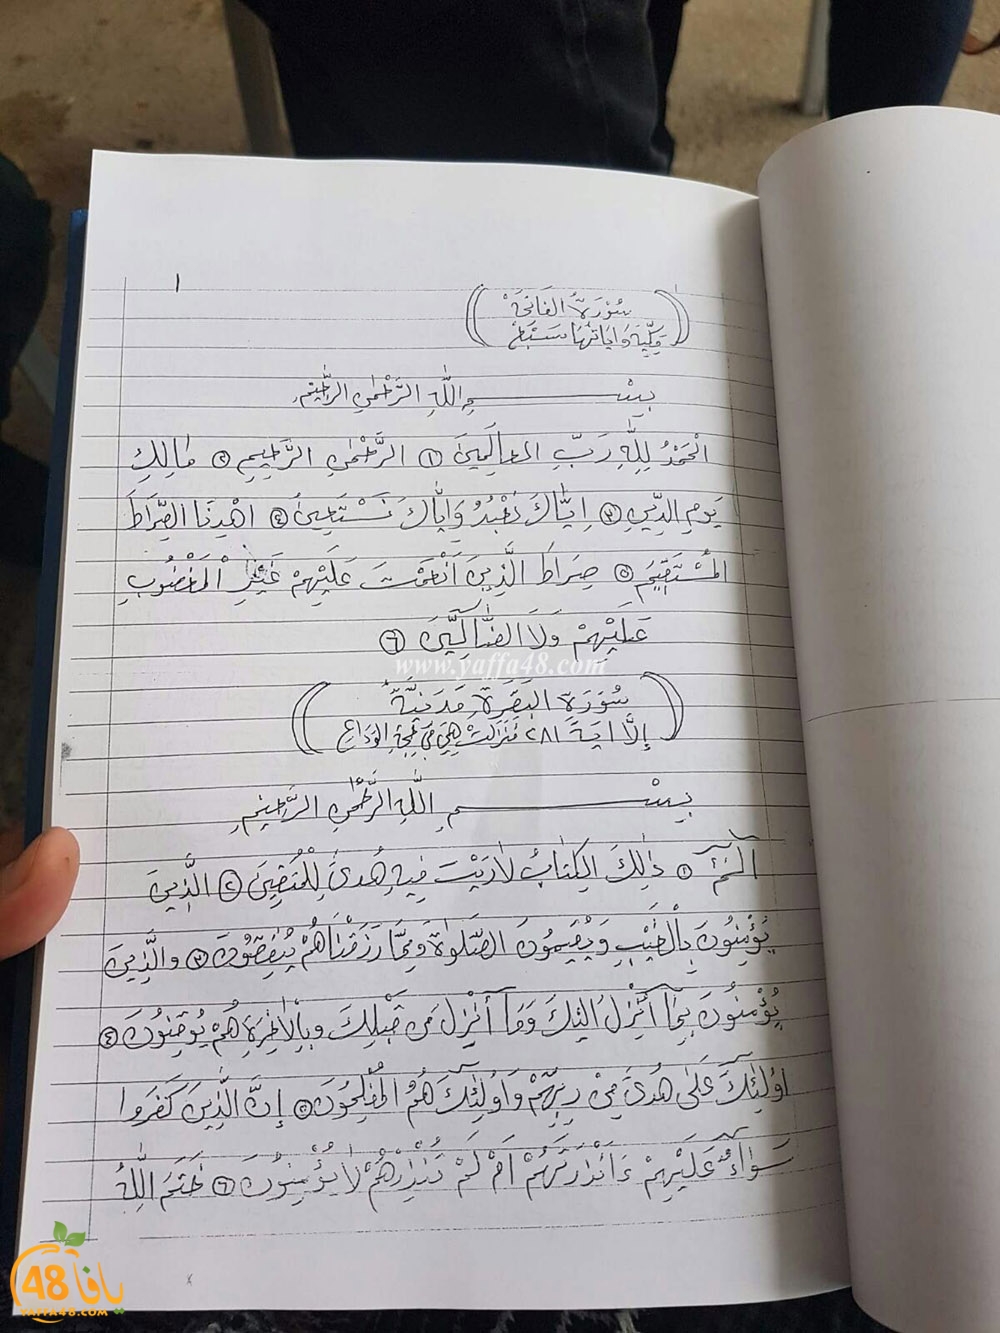 ١
سُوْرَةُ الفَاتِحَة
مَكِّيَّة وَاٰيَاتُهَا سَبْعٌ
بِسْـــــمِ اللّٰهِ الرَّحْمٰنِ الرَّحِيْمِ
اَلْحَمْدُ لِلّٰهِ رَبِّ الْعٰالَمِيْنَ ١ الرَّحْمٰنِ الرَّحِيْمِ ٢ مٰالِكِ
يَوْمِ الدِّيْنِ ٣ اِيّٰاكَ نَعْبُدُ وَاِيّٰاكَ نَسْتَعِيْنُ ٤ اِهْدِنَا الصِّرَاطَ
الْمُسْتَقِيْمَ ٥ صِرَاطَ الَّذِيْنَ اَنْعَمْتَ عَلَيْهِمْ غَيْرِ الْمَغْضُوْبِ
عَلَيْهِمْ وَلَا الضّٰآلِّيْنَ ٦
www.yaffa48.com
سُوْرَةُ البَقَرَة مَدَنِيَّة
إِلَّا اٰيَة ٢٨١ فَنَزَلَتْ بِمِنًى فِيْ حَجَّةِ الْوَدَاعِ
بِسْـــــمِ اللّٰهِ الرَّحْمٰنِ الرَّحِيْمِ
الٓـمّٓ ١ ذٰلِكَ الْكِتٰابُ لٰا رَيْبَ فِيْهِ هُدًى لِلْمُتَّقِيْنَ ٢ الَّذِيْنَ
يُؤْمِنُوْنَ بِالْغَيْبِ وَيُقِيْمُوْنَ الصَّلٰوةَ وَمِمَّا رَزَقْنٰاهُمْ يُنْفِقُوْنَ ٣ وَالَّذِيْنَ
يُؤْمِنُوْنَ بِمٰآ اُنْزِلَ اِلَيْكَ وَمٰآ اُنْزِلَ مِنْ قَبْلِكَ وَبِالْاٰخِرَةِ هُمْ يُوْقِنُوْنَ ٤
اُولٰٓئِكَ عَلٰى هُدًى مِنْ رَبِّهِمْ وَاُولٰٓئِكَ هُمُ الْمُفْلِحُوْنَ ٥ إِنَّ الَّذِيْنَ كَفَرُوا
سَوٰآءٌ عَلَيْهِمْ ءَاَنْذَرْتَهُمْ اَمْ لَمْ تُنْذِرْهُمْ لٰا يُؤْمِنُوْنَ ٦ خَتَمَ اللّٰهُ
يافا 48
YAFFA48.COM